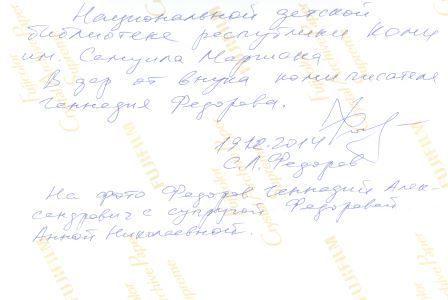 Национальной детской
библиотеке республики Коми
им. Самуила Маршака
В дар от внука коми писателя
Геннадия Федорова.
19.12.2014
С.Л. Федоров
На фото Федоров Геннадий Алек-
сандрович с супругой Федоровой
Анной Николаевной.